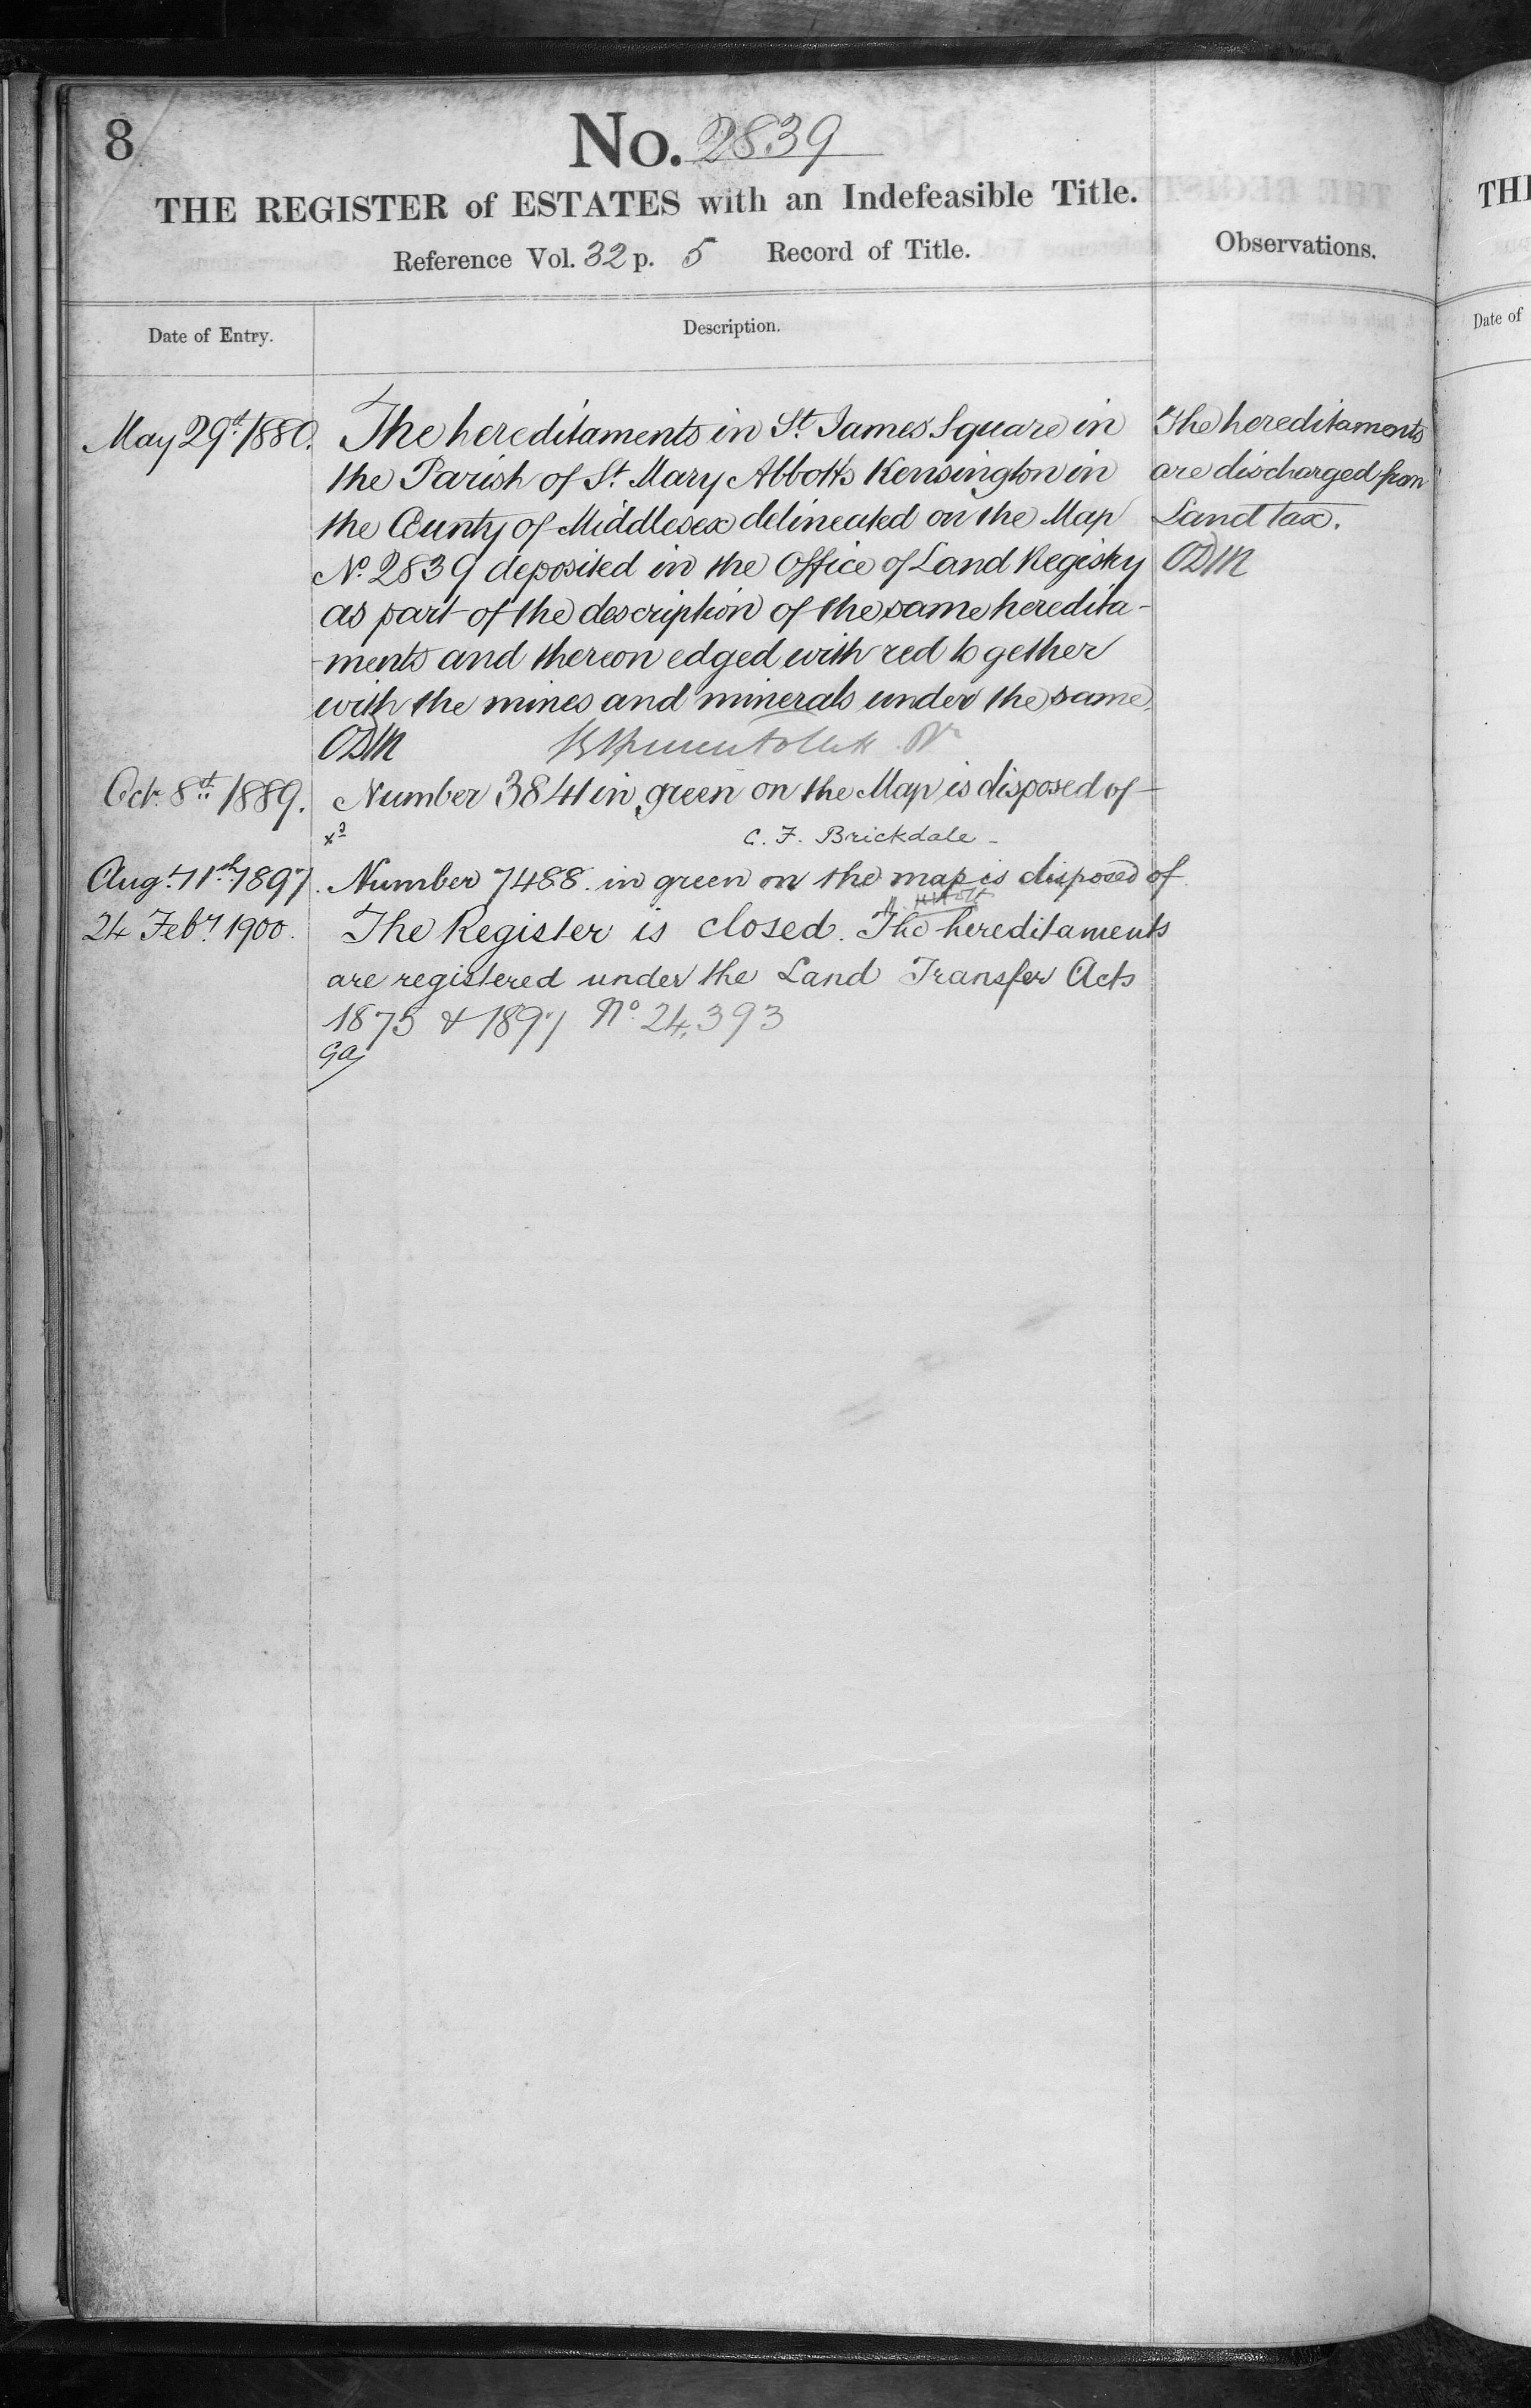 8
No. 2839
THE REGISTER of ESTATES with an Indefeasible Title.
Reference Vol. 32 p. 5 Record of Title.
Observations.
Date of Entry.
Description.
May 29th 1880.
The hereditaments in St. James' Square in
the Parish of St. Mary Abbotts Kensington in
the County of Middlesex delineated on the Map
No. 2839 deposited in the Office of Land Registry
as part of the description of the same heredita-
ments and thereon edged with red together
with the mines and minerals under the same.
ODM
The hereditaments
are discharged from
Land Tax.
ODM
Oct. 8th 1889.
Number 3841 in green on the Map is disposed of
C. F. Brickdale
Aug. 11th 1897.
Number 7488 in green on the map is disposed of
24 Feby 1900.
The Register is closed. The hereditaments
are registered under the Land Transfer Acts
1875 & 1897 No. 24,393
THE
Date of